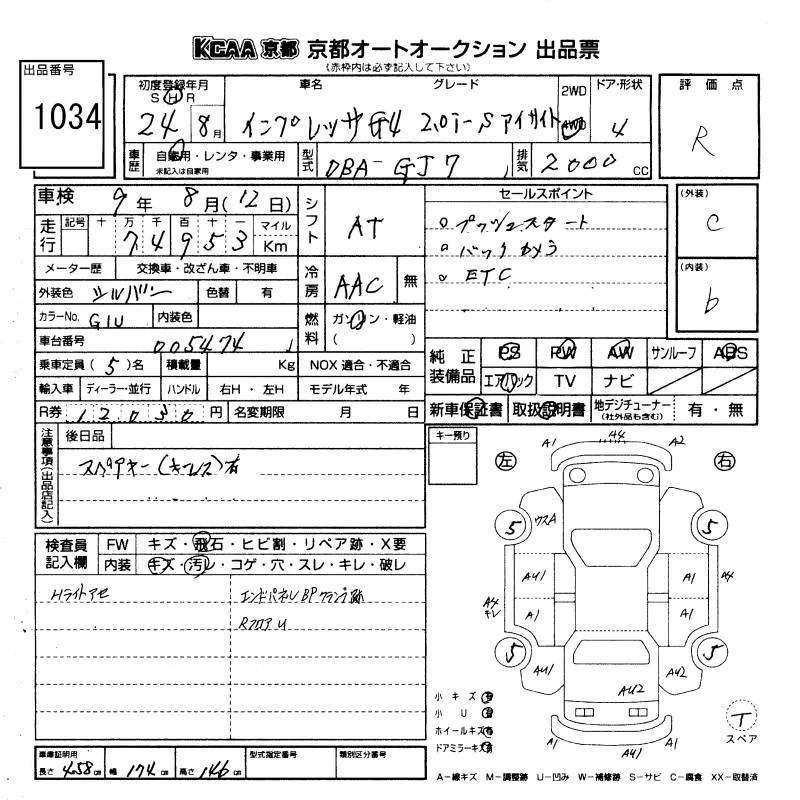 KCAA 京都 京都オートオークション 出品票
(赤枠内は必ず記入して下さい)
出品番号
1034
初度登録年月
S H R
24 8月
車名
グレード
インプレッサG4 2.0i-S アイサイト
2WD
4WD
ドア・形状
4
評価点
R
車歴
自家用・レンタ・事業用
未記入は自家用
型式
DBA-GJ7
排気
2000 CC
車検
9年 8月(12日)
シフト
AT
セールスポイント
o プッシュスタート
o バックカメラ
o ETC
(外装)
C
(内装)
b
走行
記号 十 万 千 百 十 一
7 4 9 5 3
マイル
Km
メーター歴
交換車・改ざん車・不明車
冷房
AAC
無
外装色
シルバー
色替
有
カラーNo.
G1U
内装色
燃料
ガソリン・軽油
( )
車台番号
005474
純正装備品
PS PW AW サンルーフ ABS
エアバック TV ナビ
乗車定員(5)名
積載量
Kg
NOX 適合・不適合
輸入車
ディーラー・並行
ハンドル
右H・左H
モデル年式
年
R券
12030円
名変期限
月
日
新車保証書
取扱説明書
地デジチューナー
(社外品も含む)
有・無
注意事項(出品店記入)
後日品
スペアキー(キーレス)有
キー預り
左
右
A1
A4
A2
5
ウスA
5
AU1
A1
A4
A4
キレ
A1
A1
5
AU1
AU2
5
AU2
A1
A4
A1
T
スペア
検査員記入欄
FW
キズ・飛石・ヒビ割・リペア跡・X要
内装
キズ・汚レ・コゲ・穴・スレ・キレ・破レ
Hライトアセ
エンドパネルBPクランプ跡
RフロアU
小キズ
小U
ホイールキズ
ドアミラーキズ
車庫証明用
長さ 458cm 幅 174cm 高さ 146cm
型式指定番号
類別区分番号
A-線キズ M-調整跡 U-凹み W-補修跡 S-サビ C-腐食 XX-取替済